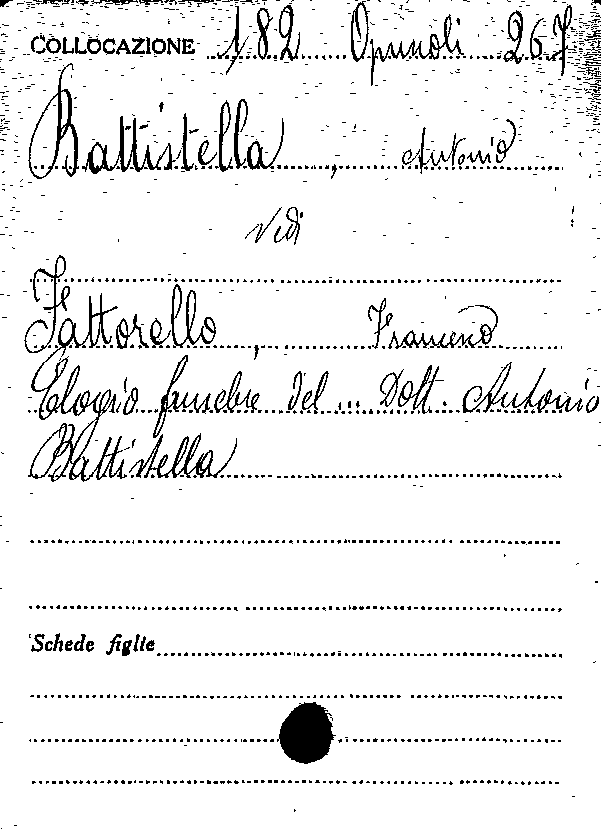 COLLOCAZIONE 182 Opuscoli 267
Battistella, Antonio
Vedi
Fattorello, Francesco
Elogio funebre del ... Dott. Antonio
Battistella
Schede figlie